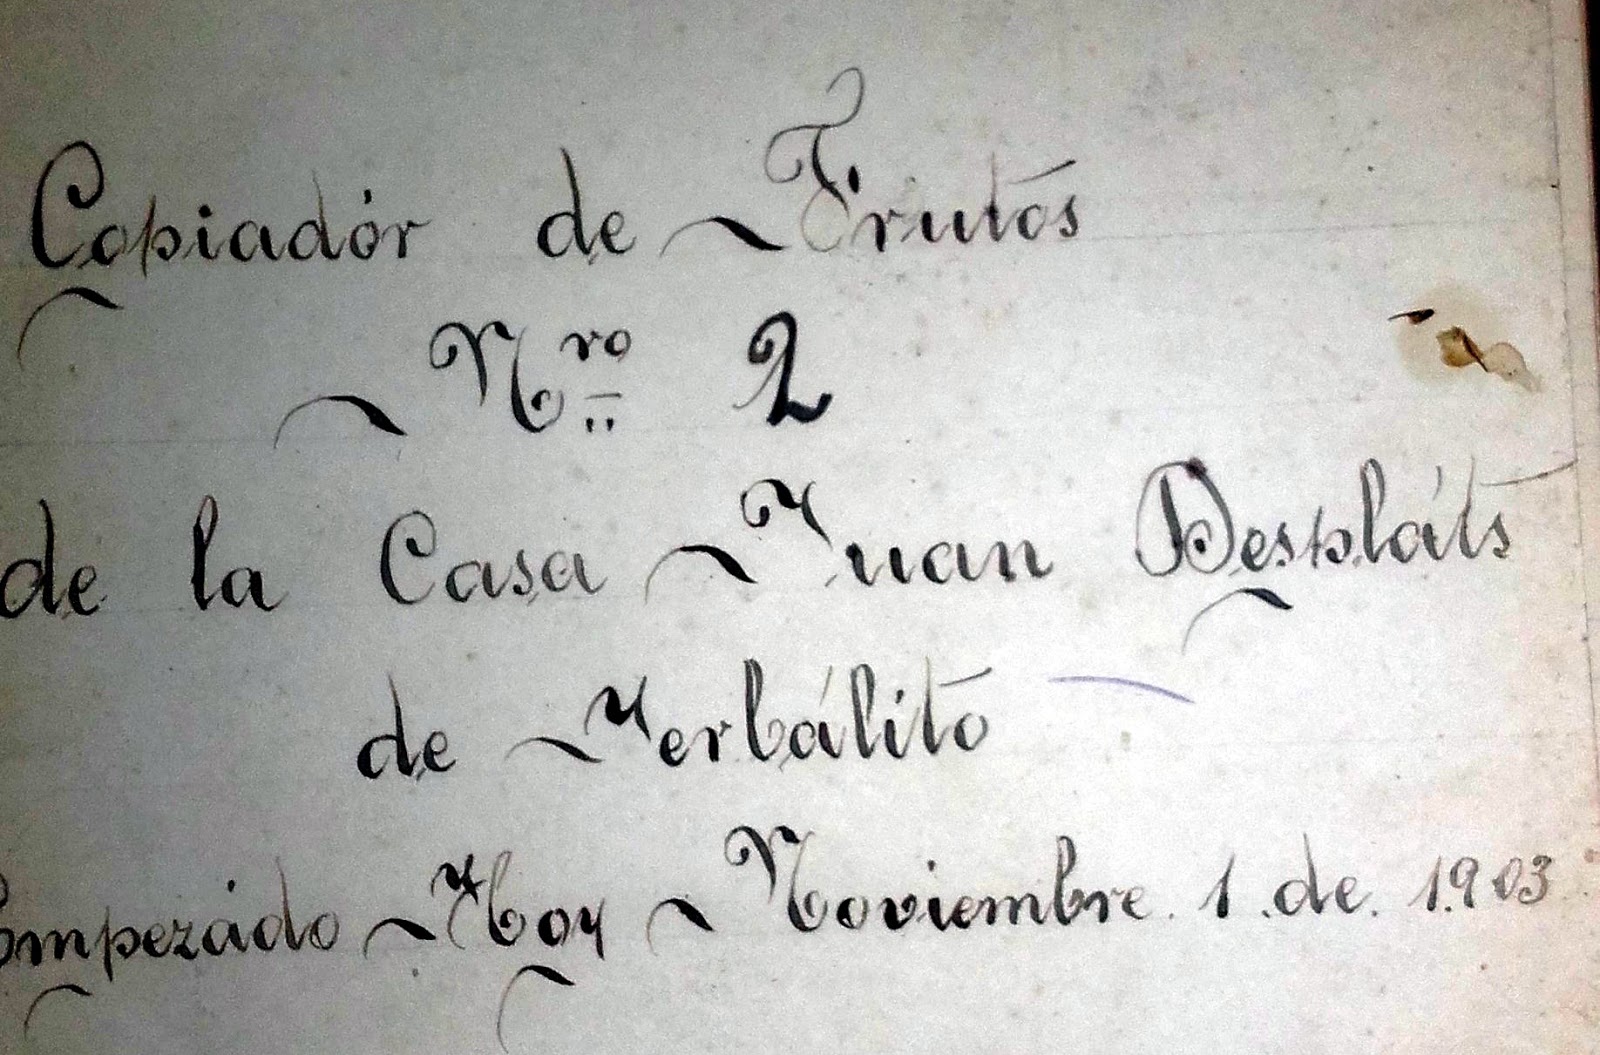 Copiadór de Frutós
Nro 2
de la Casa Juan Despláts
de Yerbálitó
Empezádo Hoy Noviembre. 1. de. 1.903